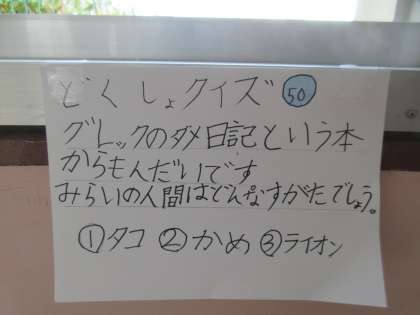 どくしょクイズ 50
グレッグのダメ日記という本
からもんだいです
みらいの人間はどんなすがたでしょう。
①タコ ②かめ ③ライオン